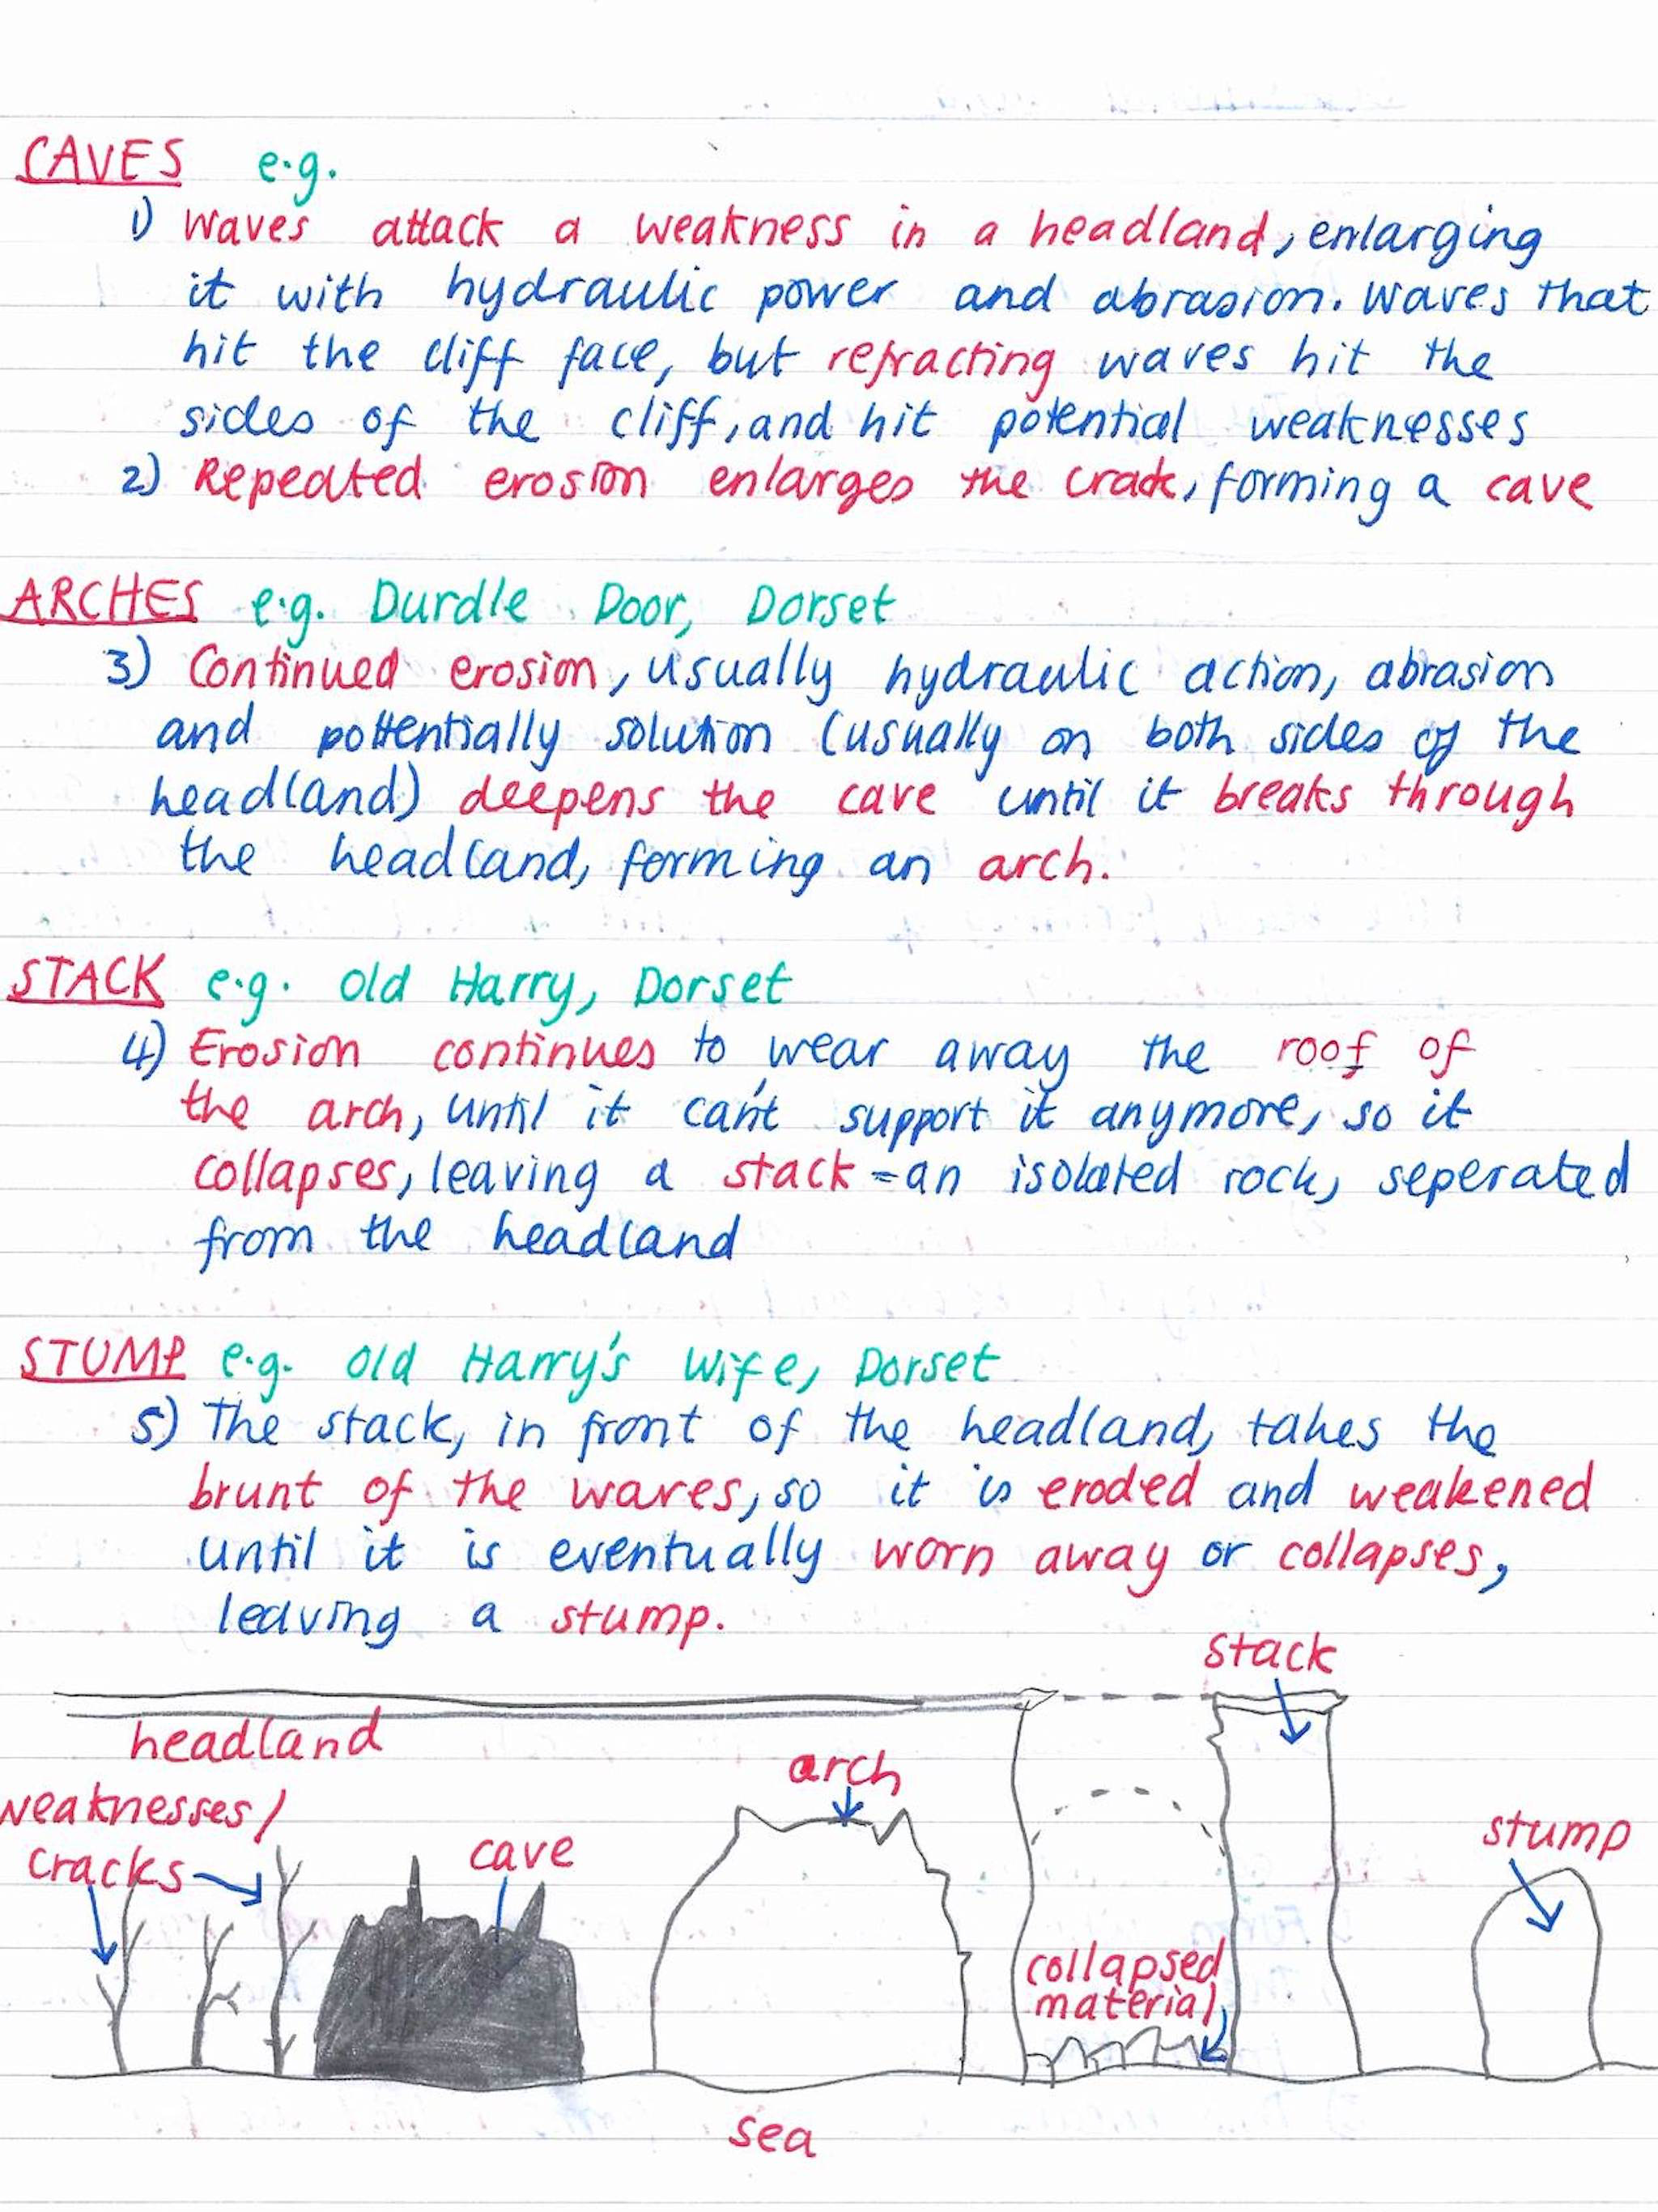 CAVES e.g.
1) Waves attack a weakness in a headland, enlarging
it with hydraulic power and abrasion. Waves that
hit the cliff face, but refracting waves hit the
sides of the cliff, and hit potential weaknesses
2) Repeated erosion enlarges the crack, forming a cave
ARCHES e.g. Durdle Door, Dorset
3) Continued erosion, usually hydraulic action, abrasion
and potentially solution (usually on both sides of the
headland) deepens the cave until it breaks through
the headland, forming an arch.
STACK e.g. Old Harry, Dorset
4) Erosion continues to wear away the roof of
the arch, until it can't support it anymore, so it
collapses, leaving a stack - an isolated rock, seperated
from the headland
STUMP e.g. Old Harry's Wife, Dorset
5) The stack, in front of the headland, takes the
brunt of the waves, so it is eroded and weakened
until it is eventually worn away or collapses,
leaving a stump.
stack
headland
arch
weaknesses/
cracks
cave
stump
collapsed
material
sea